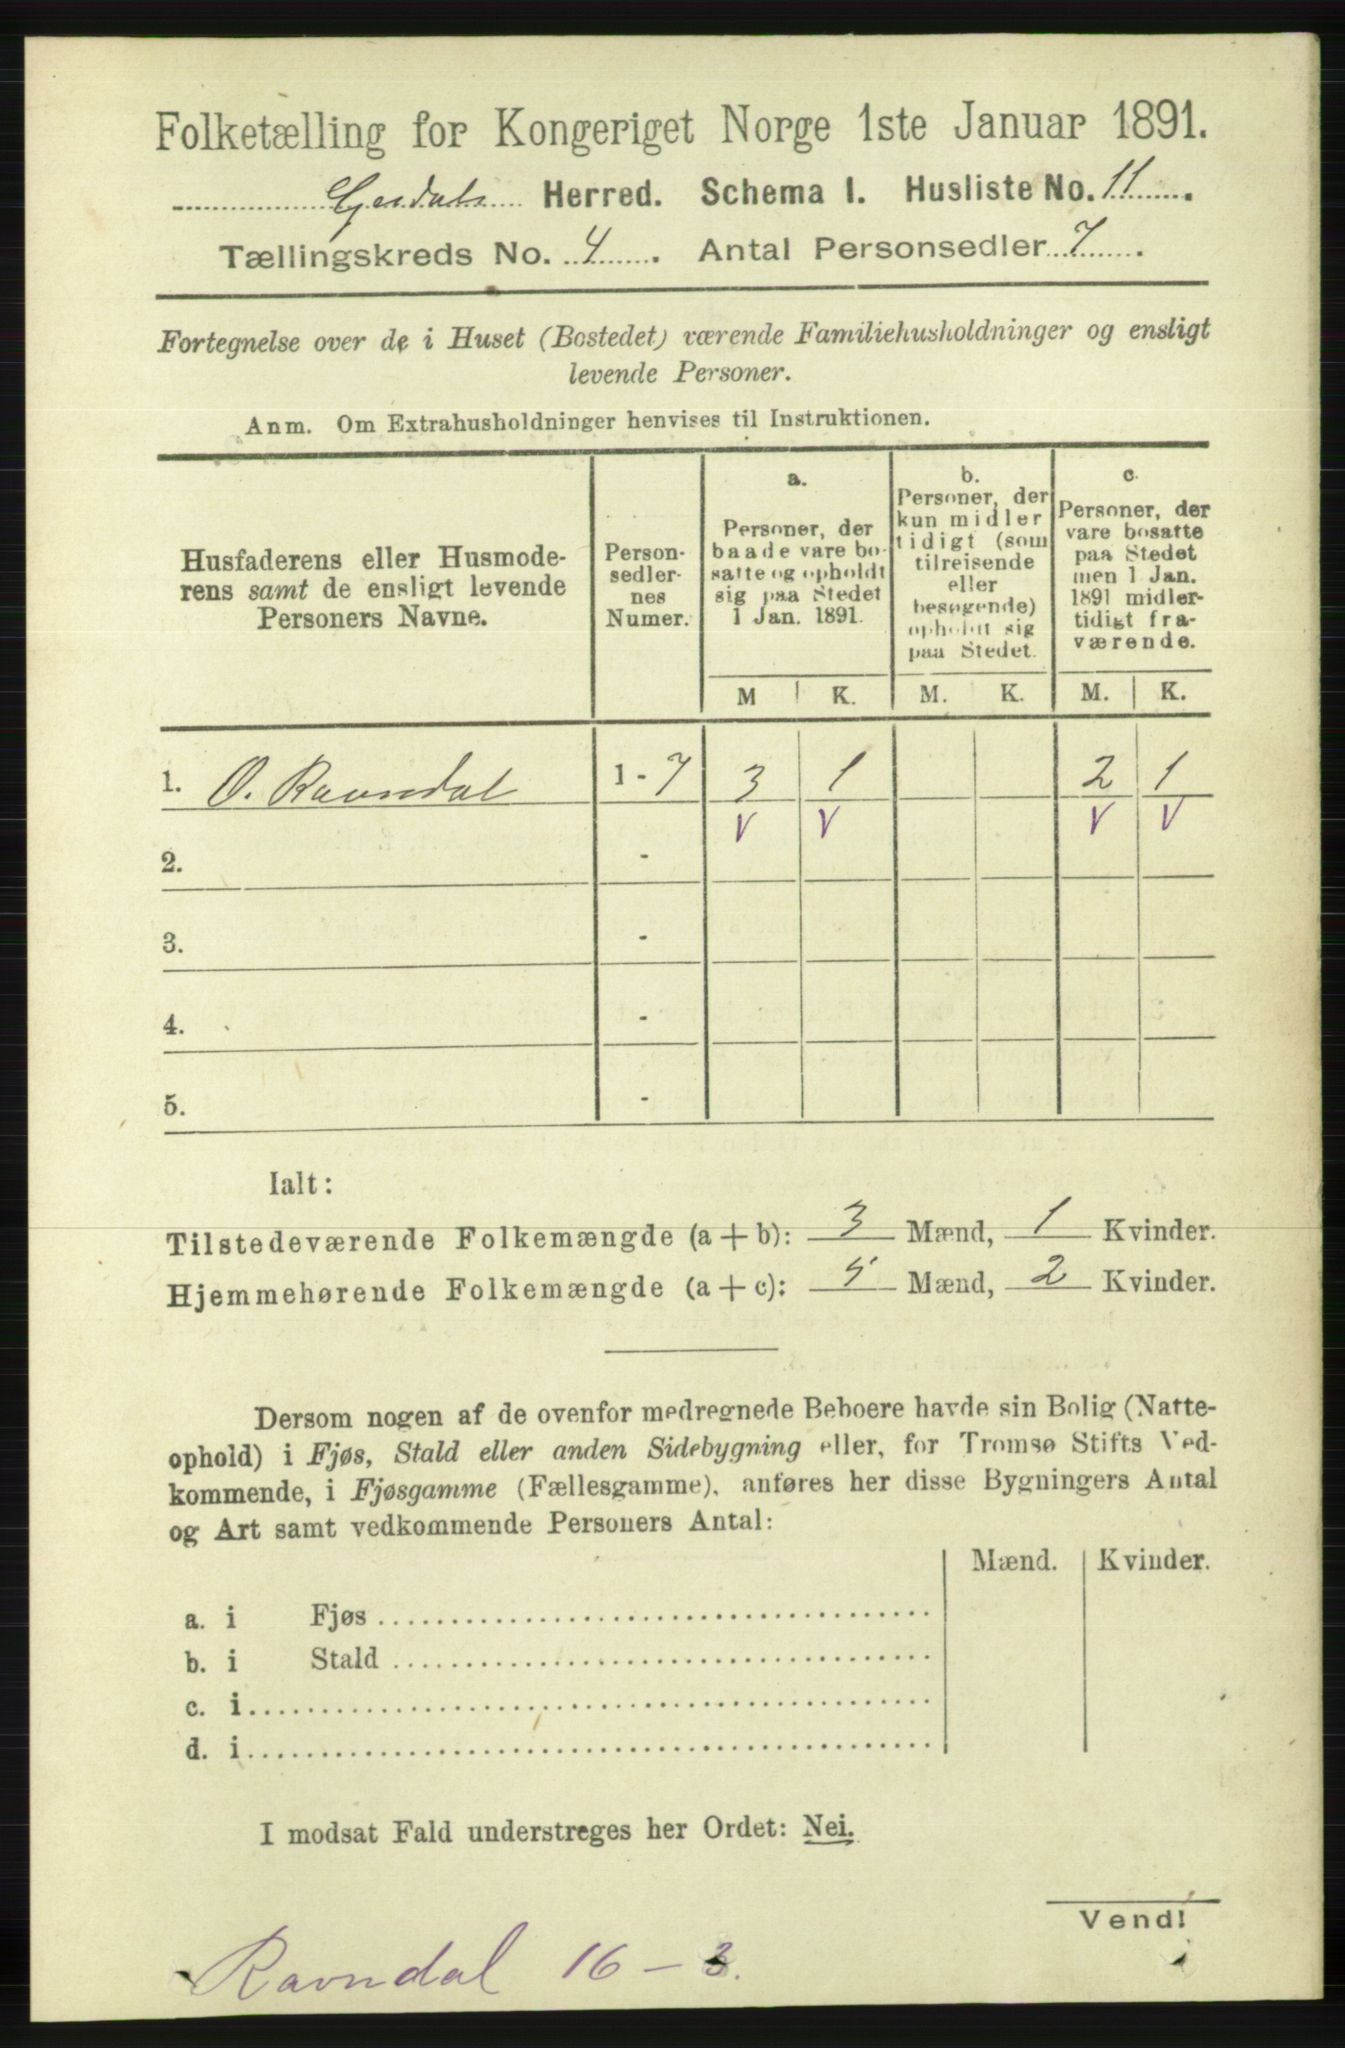 Folketælling for Kongeriget Norge 1ste Januar 1891.
Gjesdals Herred. Schema I. Husliste No. 11.
Tællingskreds No. 4. Antal Personsedler 7.
Fortegnelse over de i Huset (Bostedet) værende Familiehusholdninger og ensligt
levende Personer.
Anm. Om Extrahusholdninger henvises til Instruktionen.
Husfaderens eller Husmode-
rens samt de ensligt levende
Personers Navne.
Person-
sedler-
nes
Numer.
a.
Personer, der
baade vare bo-
satte og opholdt
sig paa Stedet
1 Jan. 1891.
b.
Personer, der
kun midler
tidigt (som
tilreisende
eller
besøgende)
opholdt sig
paa Stedet.
c.
Personer, der
vare bosatte
paa Stedet
men 1 Jan.
1891 midler-
tidigt fra-
værende.
M K. M. K. M. K.
1. O. Ravndal 1 - 7 3 1 2 1
V V V V
2. -
3. -
4. -
5. -
Ialt:
Tilstedeværende Folkemængde (a + b): 3 Mænd, 1 Kvinder.
Hjemmehørende Folkemængde (a + c): 5 Mænd, 2 Kvinder.
Dersom nogen af de ovenfor medregnede Beboere havde sin Bolig (Natte-
ophold) i Fjøs, Stald eller anden Sidebygning eller, for Tromsø Stifts Ved-
kommende, i Fjøsgamme (Fællesgamme), anføres her disse Bygningers Antal
og Art samt vedkommende Personers Antal:
Mænd. Kvinder.
a. i Fjøs
b. i Stald
c. i
d. i
I modsat Fald understreges her Ordet: Nei.
Vend!
Ravndal 16 - 3.